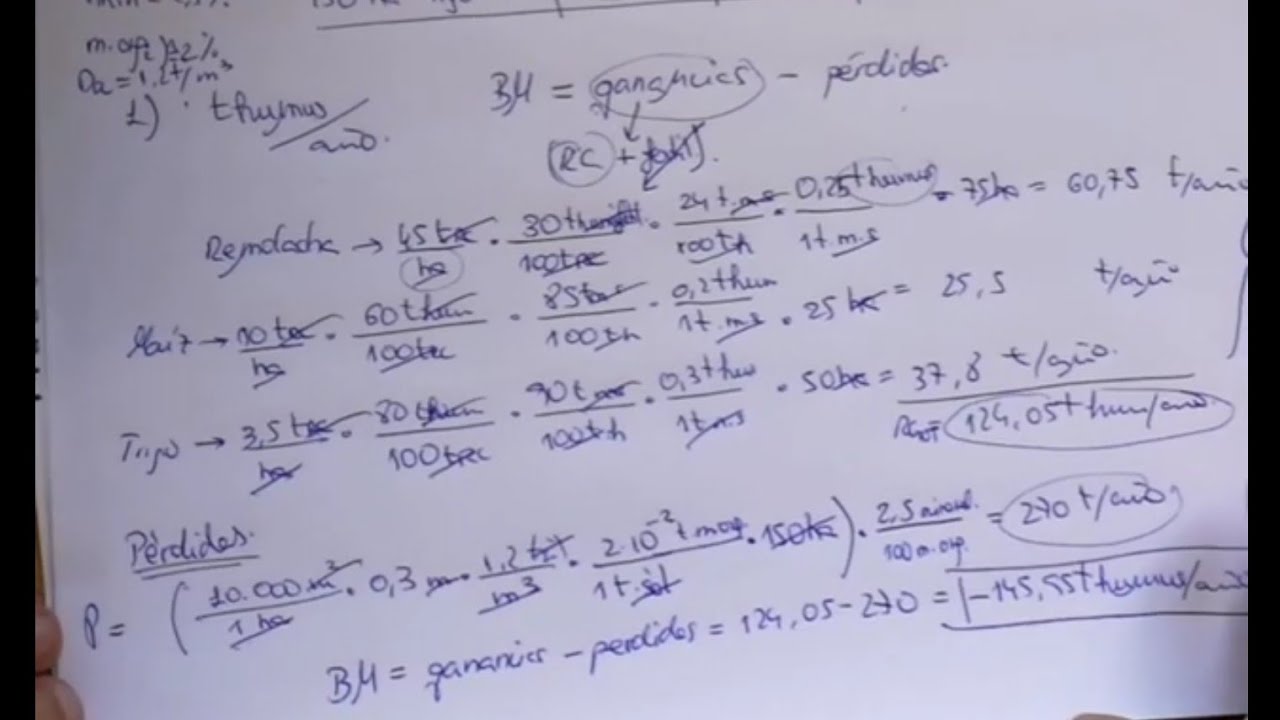 150 ha
m.org) 2%
Da = 1,2t/m³
1) · t humus/año.
BH = ganancias - pérdidas.
(RC + ).
Remolacha → 45 trc/ha · 30 t /100 trc · 24 t.ms/100 th · 0,25 t humus/1t.m.s · 75 ha = 60,75 t/año
Maiz → 10 trc/ha · 60 t hum/100 trc · 85 t ms/100 th · 0,2 t hum/1t.ms · 25 ha = 25,5 t/año
Trigo → 3,5 trc/ha · 80 t hum/100 trc · 90 t ms/100 t h · 0,3 t hum/1t m.s · 50 ha = 37,8 t/año.
124,05 t hum/año.
Pérdidas.
P = (10.000 m²/1 ha · 0,3 m · 1,2 t/m³ · 2·10⁻² t morg/1 t. · 150 ha) · 2,5 /100 m.org. = 270 t/año
BH = ganancias - perdidas = 124,05 - 270 = -145,55 t humus/año